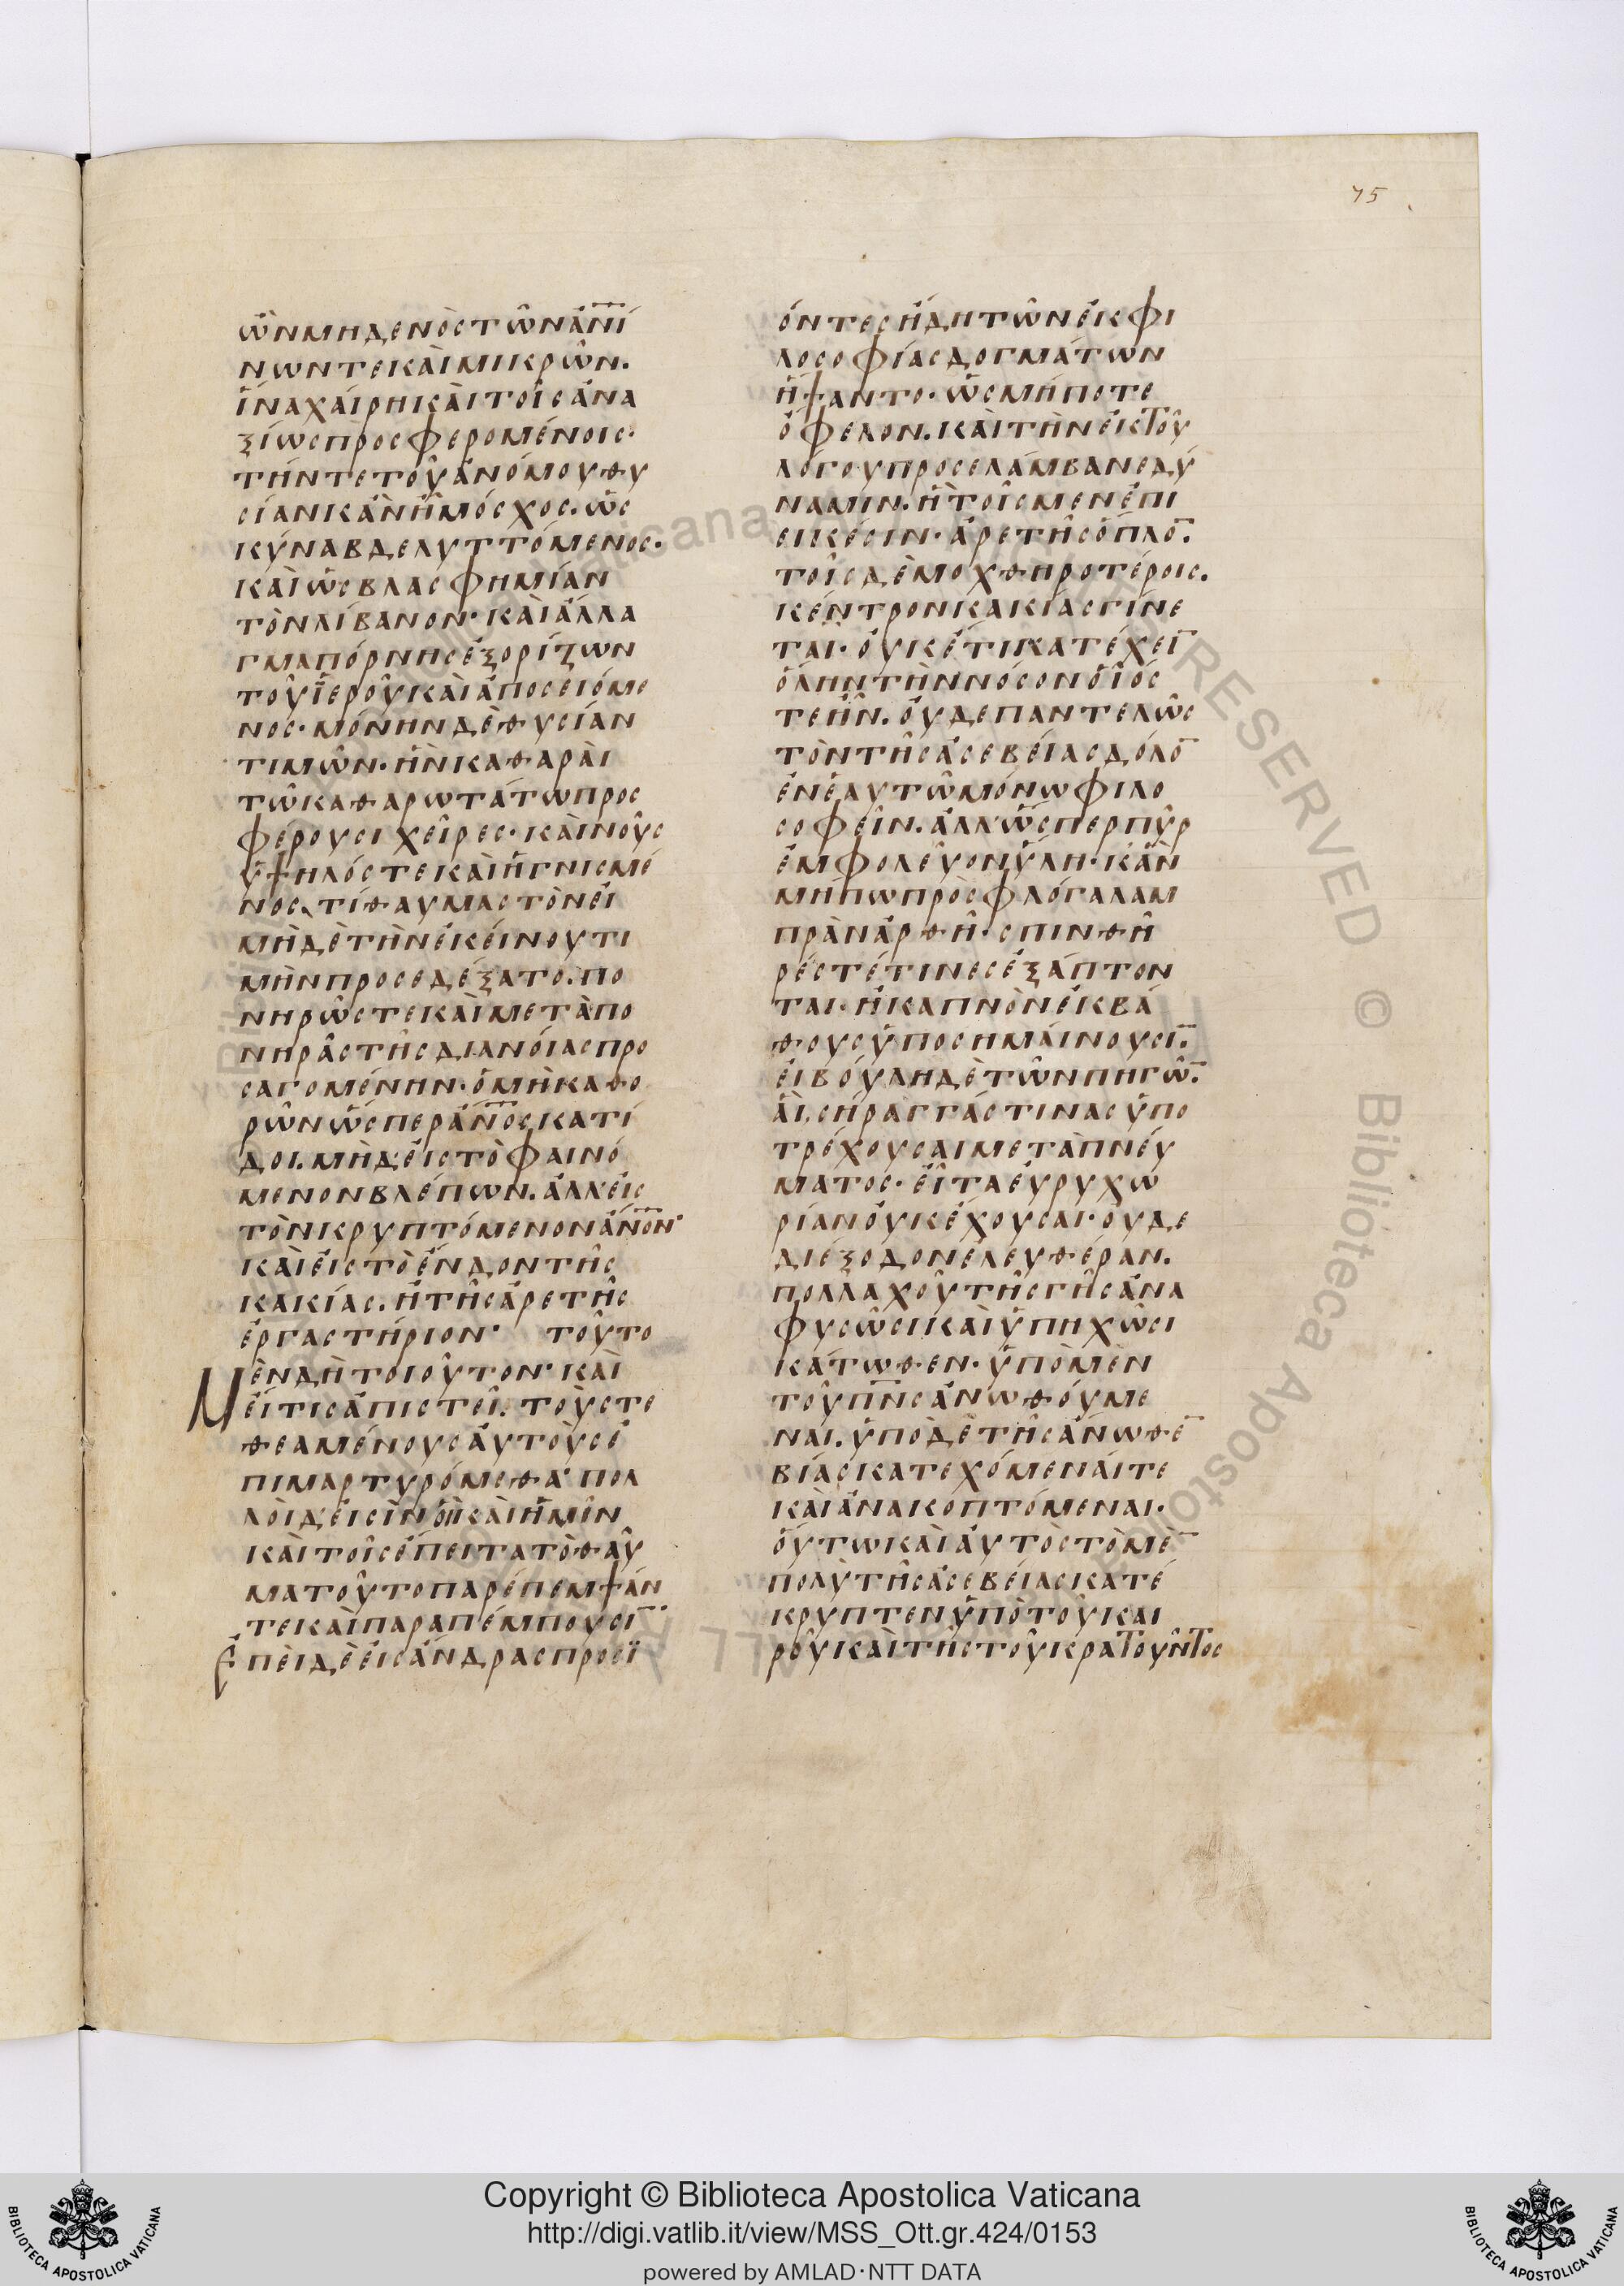 75
ὢν μηδενὸς τῶν ἀνίνων τε καὶ μικρῶν.
ἵνα χαίρηι καὶ τοῖς ἀνα
ξίως προσφερομένοις·
τήντε τοῦ ἀνόμου θυ
σίαν κἂν ἦ μόσχος. ὡς
κύνα βδελυττόμενος.
καὶ ὡς βλασφημίαν
τὸν λίβανον· καὶ ἄλλα
γμα πόρνης ἐξορίζων
τοῦ ἱεροῦ καὶ ἀποσειόμε
νος· μόνην δὲ θυσίαν
τιμῶν· ἣν καθαραὶ
τῶ καθαρωτάτω προς
φέρουσι χεῖρες· καὶ νοῦς
ὑψηλός τε καὶ ἡγνισμέ
νος, τί θαυμαστὸν εἰ
μὴ δὲ τὴν ἐκείνου τι
μὴν προσεδέξατο. πο
νηρῶς τε καὶ μετὰ πο
νηρᾶς τῆς διανοίας προ
σαγομένην· ὁ μὴ καθο
ρῶν ὥσπερ ἀνος κατί
δοι. μὴ δ' εἰς τὸ φαινό
μενον βλέπων. ἀλλ' εἰς
τὸν κρυπτόμενον ἀνον·
καὶ εἰς τὸ ἔνδον τῆς
κακίας. ἢ τῆς ἀρετῆς
ἐργαστήριον· τοῦτο
Μὲν δὴ τοιοῦτον· καὶ
εἴ τις ἀπιστεῖ. τοὺς τε
θεαμένους αὐτοὺς ἐ
πιμαρτυρόμεθα· πολ
λοὶ δ' εἰσὶν οἳ καὶ ἡμῖν
καὶ τοῖς ἔπειτα τὸ θαῦ
μα τοῦτο παρέπεμψάν
τε καὶ παραπέμπουσι̅·
Ἐπεὶ δὲ εἰς ἄνδρας προσϊ
όντες ἤδη τῶν ἐκ φι
λοσοφίας δογμάτων
ἥψαντο· ὡς μήποτε
ὄφελον. καὶ τὴν ἐκ τοῦ
λόγου προσελάμβανε δύ
ναμιν. ἣ τοῖς μεν ἐπι
εικέσιν· ἀρετῆς ὅπλο̅.
τοῖς δὲ μοχθηροτέροις.
κέντρον κακίας γίνε
ται· οὐκέτι κατέχει̅
ὅλην τὴν νόσον οἷός
τε ἦν. οὐδε παντελῶς
τὸν τῆς ἀσεβείας δόλο̅
ἐν ἑαυτῶ μόνω φιλο
σοφεῖν. ἀλλ' ὥσπερ πῦρ
ἐμφολεῦον ὕλη· κἂν
μήπω πρὸς φλόγα λαμ
πρὰν ἀρθῆ· σπινθῆ
ρές τέ τινες ἐξάπτον
ται· ἢ καπνὸν ἐκ βά
θους ὑποσημαίνουσι̅.
εἰ βούλη δὲ τῶν πηγῶ̅.
αἳ σήραγγάς τινας ὑπο
τρέχουσαι μετὰ πνεύ
ματος· εἶτα εὐρυχω
ρίαν οὐκ ἔχουσαι· οὐδε
διέξοδον ἐλευθέραν.
πολλαχοῦ τῆς γῆς ἀνα
φυσῶσι καὶ ὑπηχῶσι
κάτωθεν· ὑπὸ μὲν
τοῦ πνς ἀνωθούμε
ναι. ὑπὸ δὲ τῆς ἄνωθε̅
βίας κατεχόμεναί τε
καὶ ἀνακοπτόμεναι.
οὕτω καὶ αὐτὸς τὸ μὲ̅
πολὺ τῆς ἀσεβείας κατέ
κρυπτεν ὑπὸ τοῦ και
ροῦ καὶ τῆς τοῦ κρατοῦντος
Copyright © Biblioteca Apostolica Vaticana
http://digi.vatlib.it/view/MSS_Ott.gr.424/0153
powered by AMLAD·NTT DATA